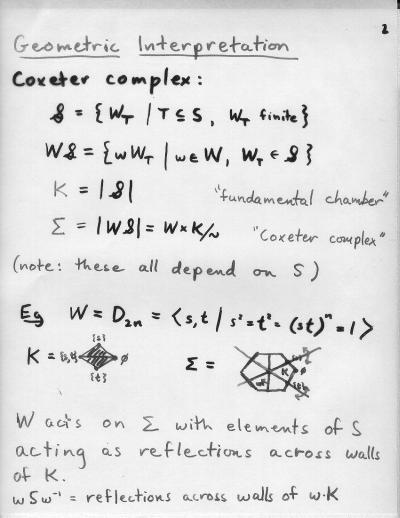 2
Geometric Interpretation
Coxeter complex:
𝒮 = {W_T | T ⊆ S, W_T finite}
W𝒮 = {wW_T | w ∈ W, W_T ∈ 𝒮}
K = |𝒮| "fundamental chamber"
Σ = |W𝒮| = W × K/~ "Coxeter complex"
(note: these all depend on S)
Eg W = D_{2n} = ⟨s,t | s² = t² = (st)ⁿ = 1⟩
{s}
K = {s,t} ∅ Σ = K ∅
{t} {t}
W acts on Σ with elements of S
acting as reflections across walls
of K.
wSw⁻¹ = reflections across walls of w·K